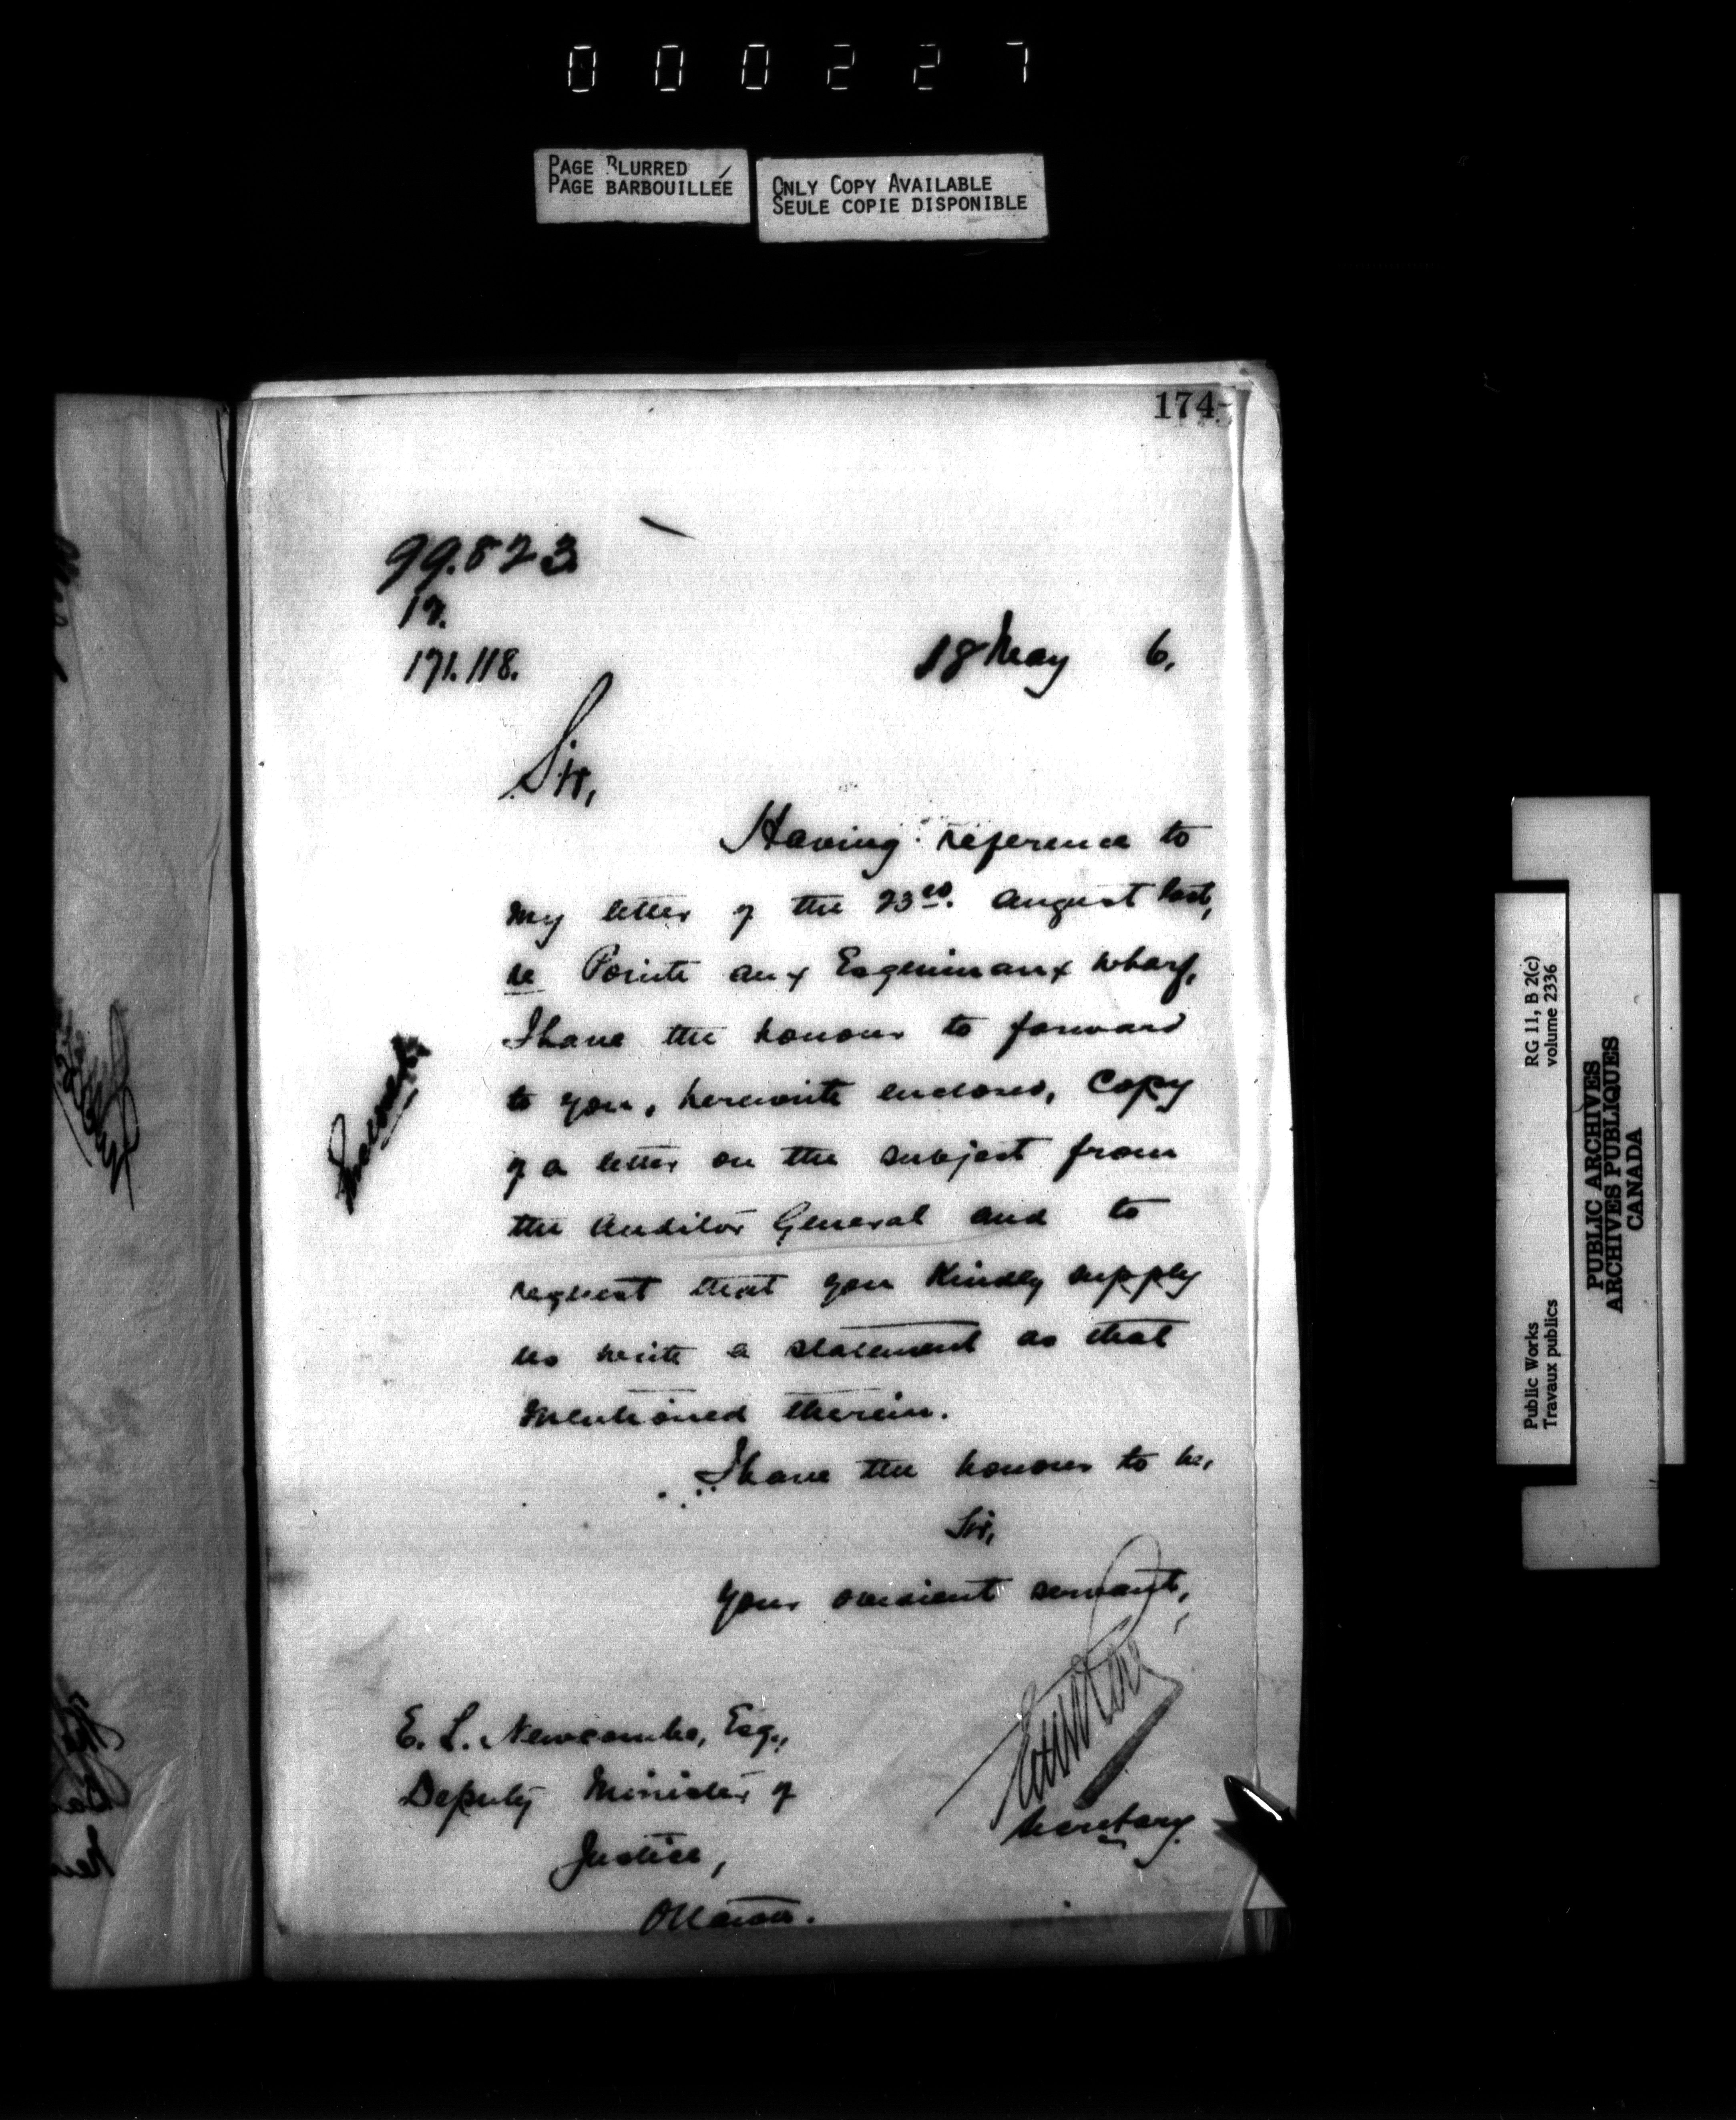 000227
PAGE BLURRED
PAGE BARBOUILLÉE
ONLY COPY AVAILABLE
SEULE COPIE DISPONIBLE
174
99.823
17.
171.118.
18 May 6.
Sir,
Having reference to
my letter of the 23rd. August last,
re Pointe aux Esquimaux wharf,
I have the honour to forward
to you, herewith enclosed, copy
of a letter on the subject from
the Auditor General and to
request that you kindly supply
us with a statement as that
mentioned therein.
I have the honour to be,
Sir,
Your obedient servant,
Secretary.
E. L. Newcombe, Esq.,
Deputy Minister of
Justice,
Ottawa.
RG 11, B 2(c)
volume 2336
Public Works
Travaux publics
PUBLIC ARCHIVES
ARCHIVES PUBLIQUES
CANADA